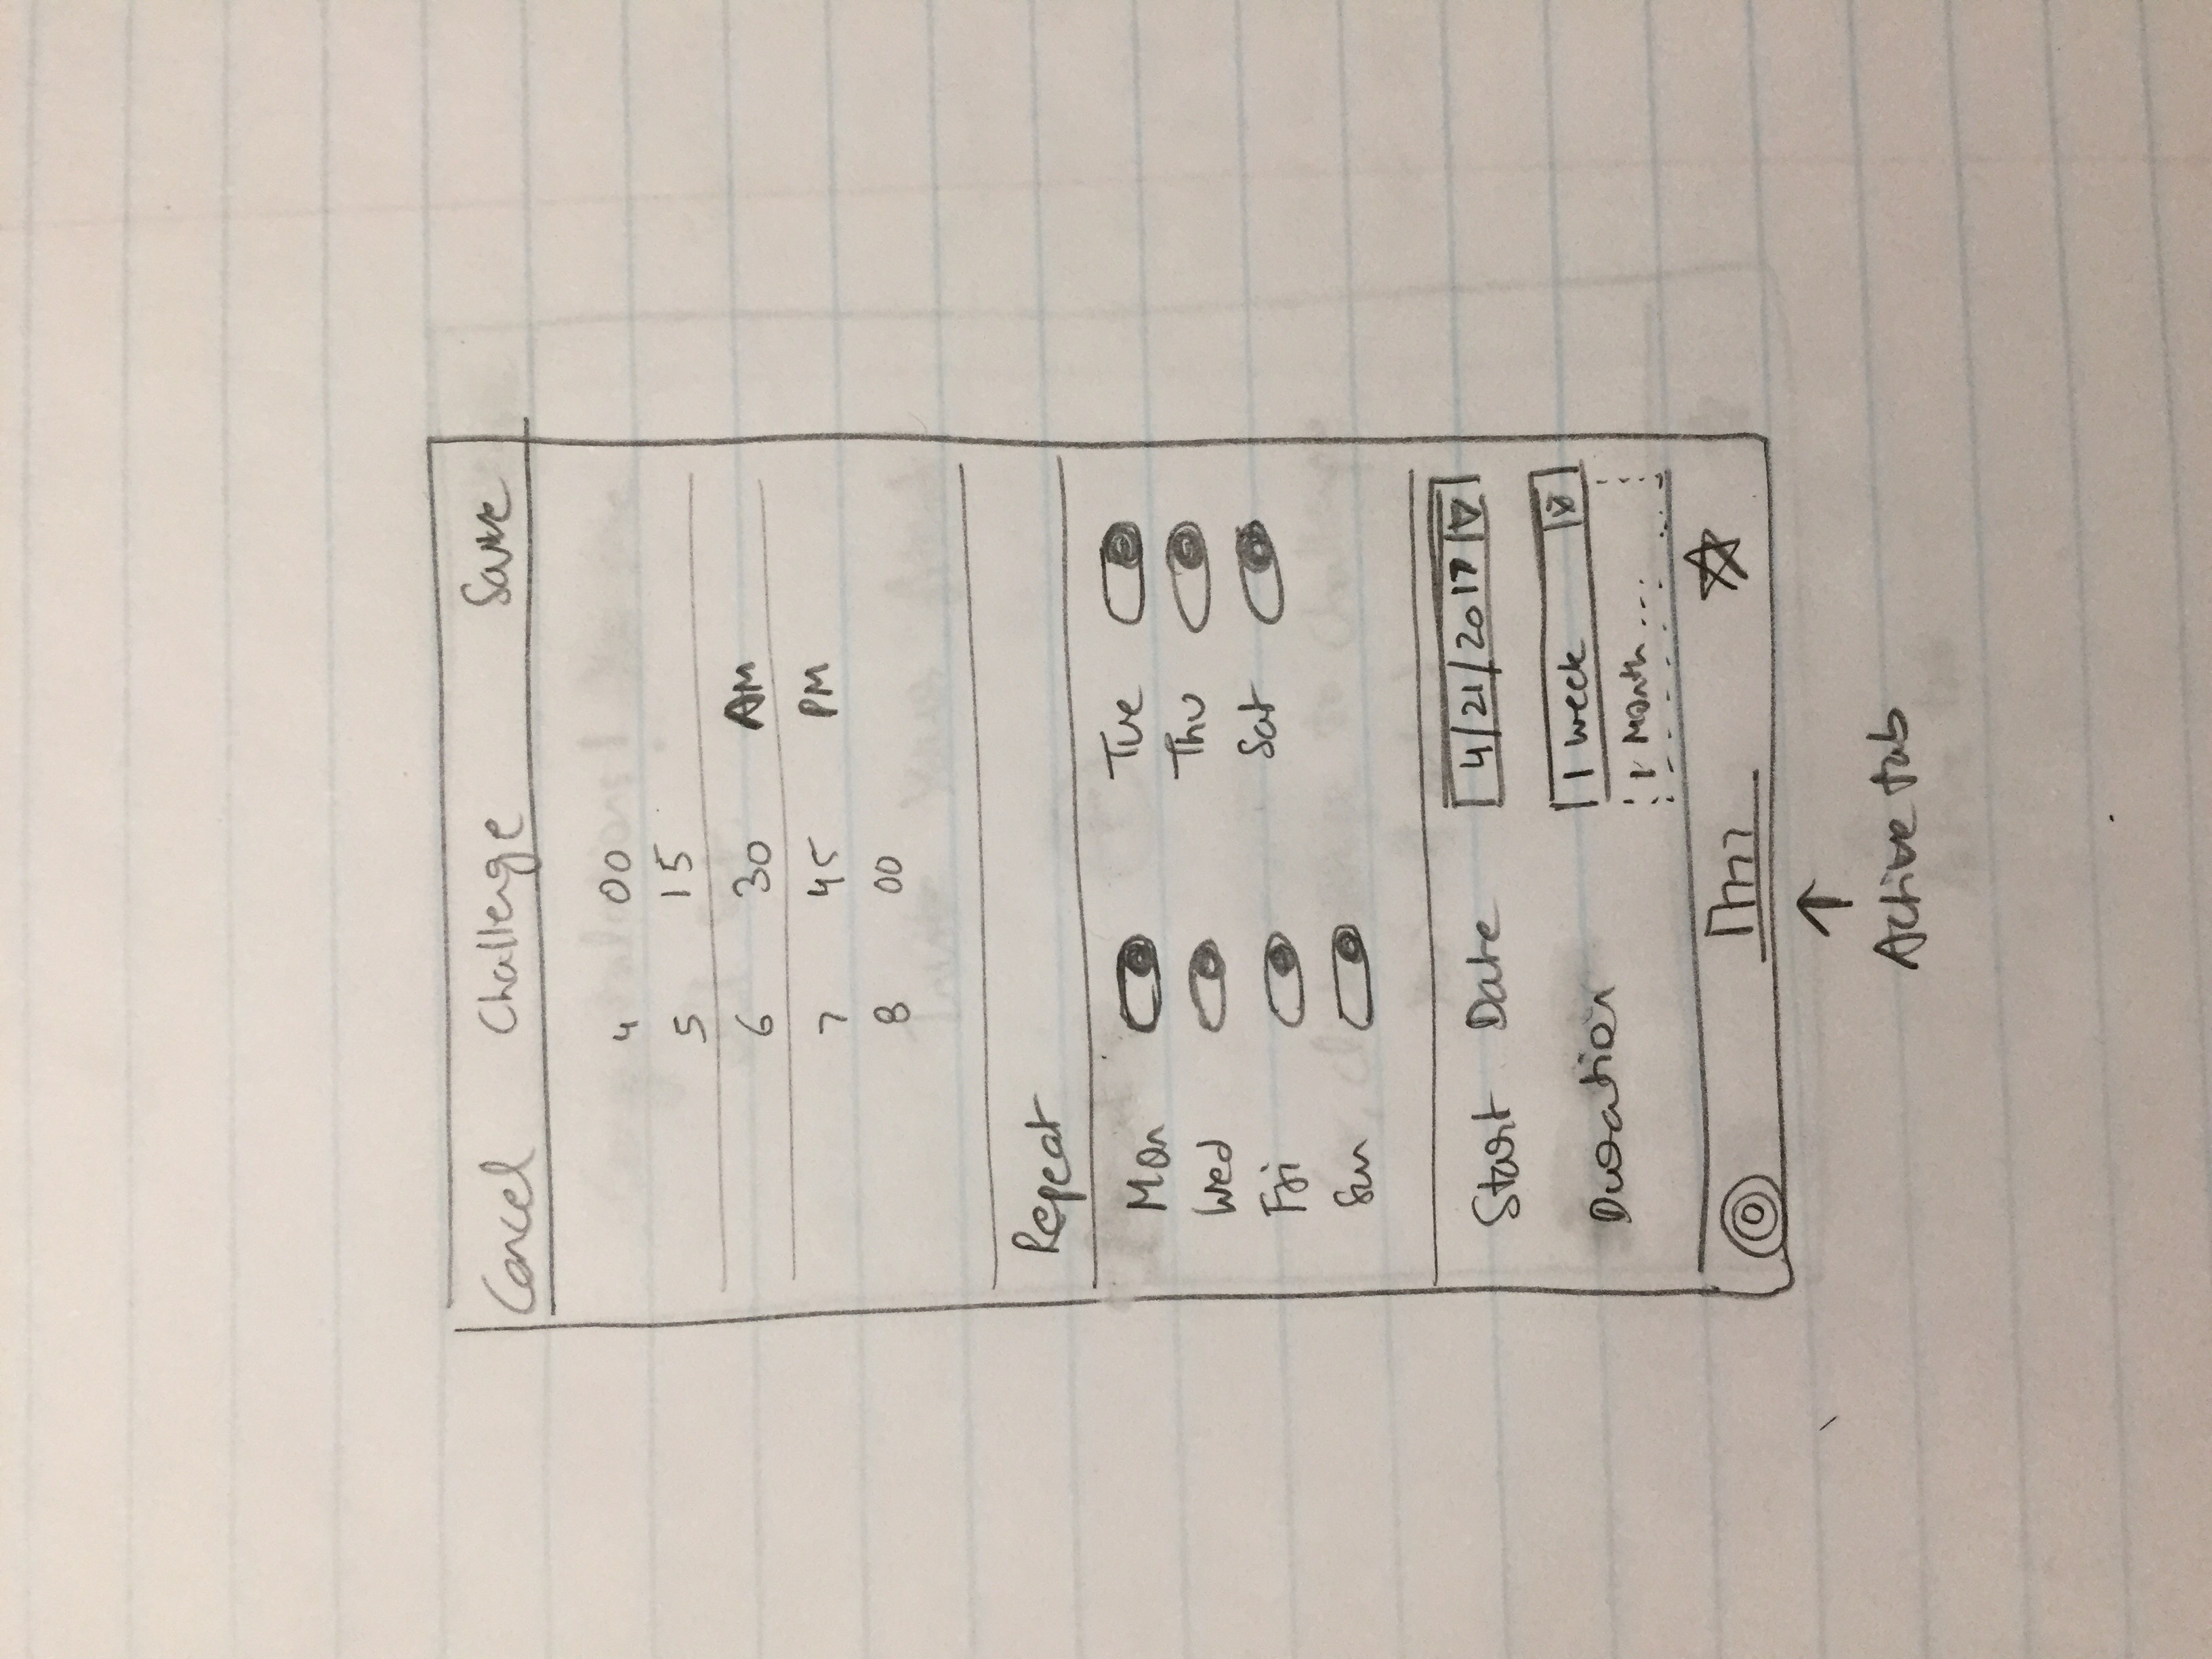 Cancel Challenge Save
4 00
5 15
6 30 AM
7 45 PM
8 00
Repeat
Mon Tue
Wed Thu
Fri Sat
Sun
Start Date 4/21/2017
Duration 1 week
1 Month ...
Active tab